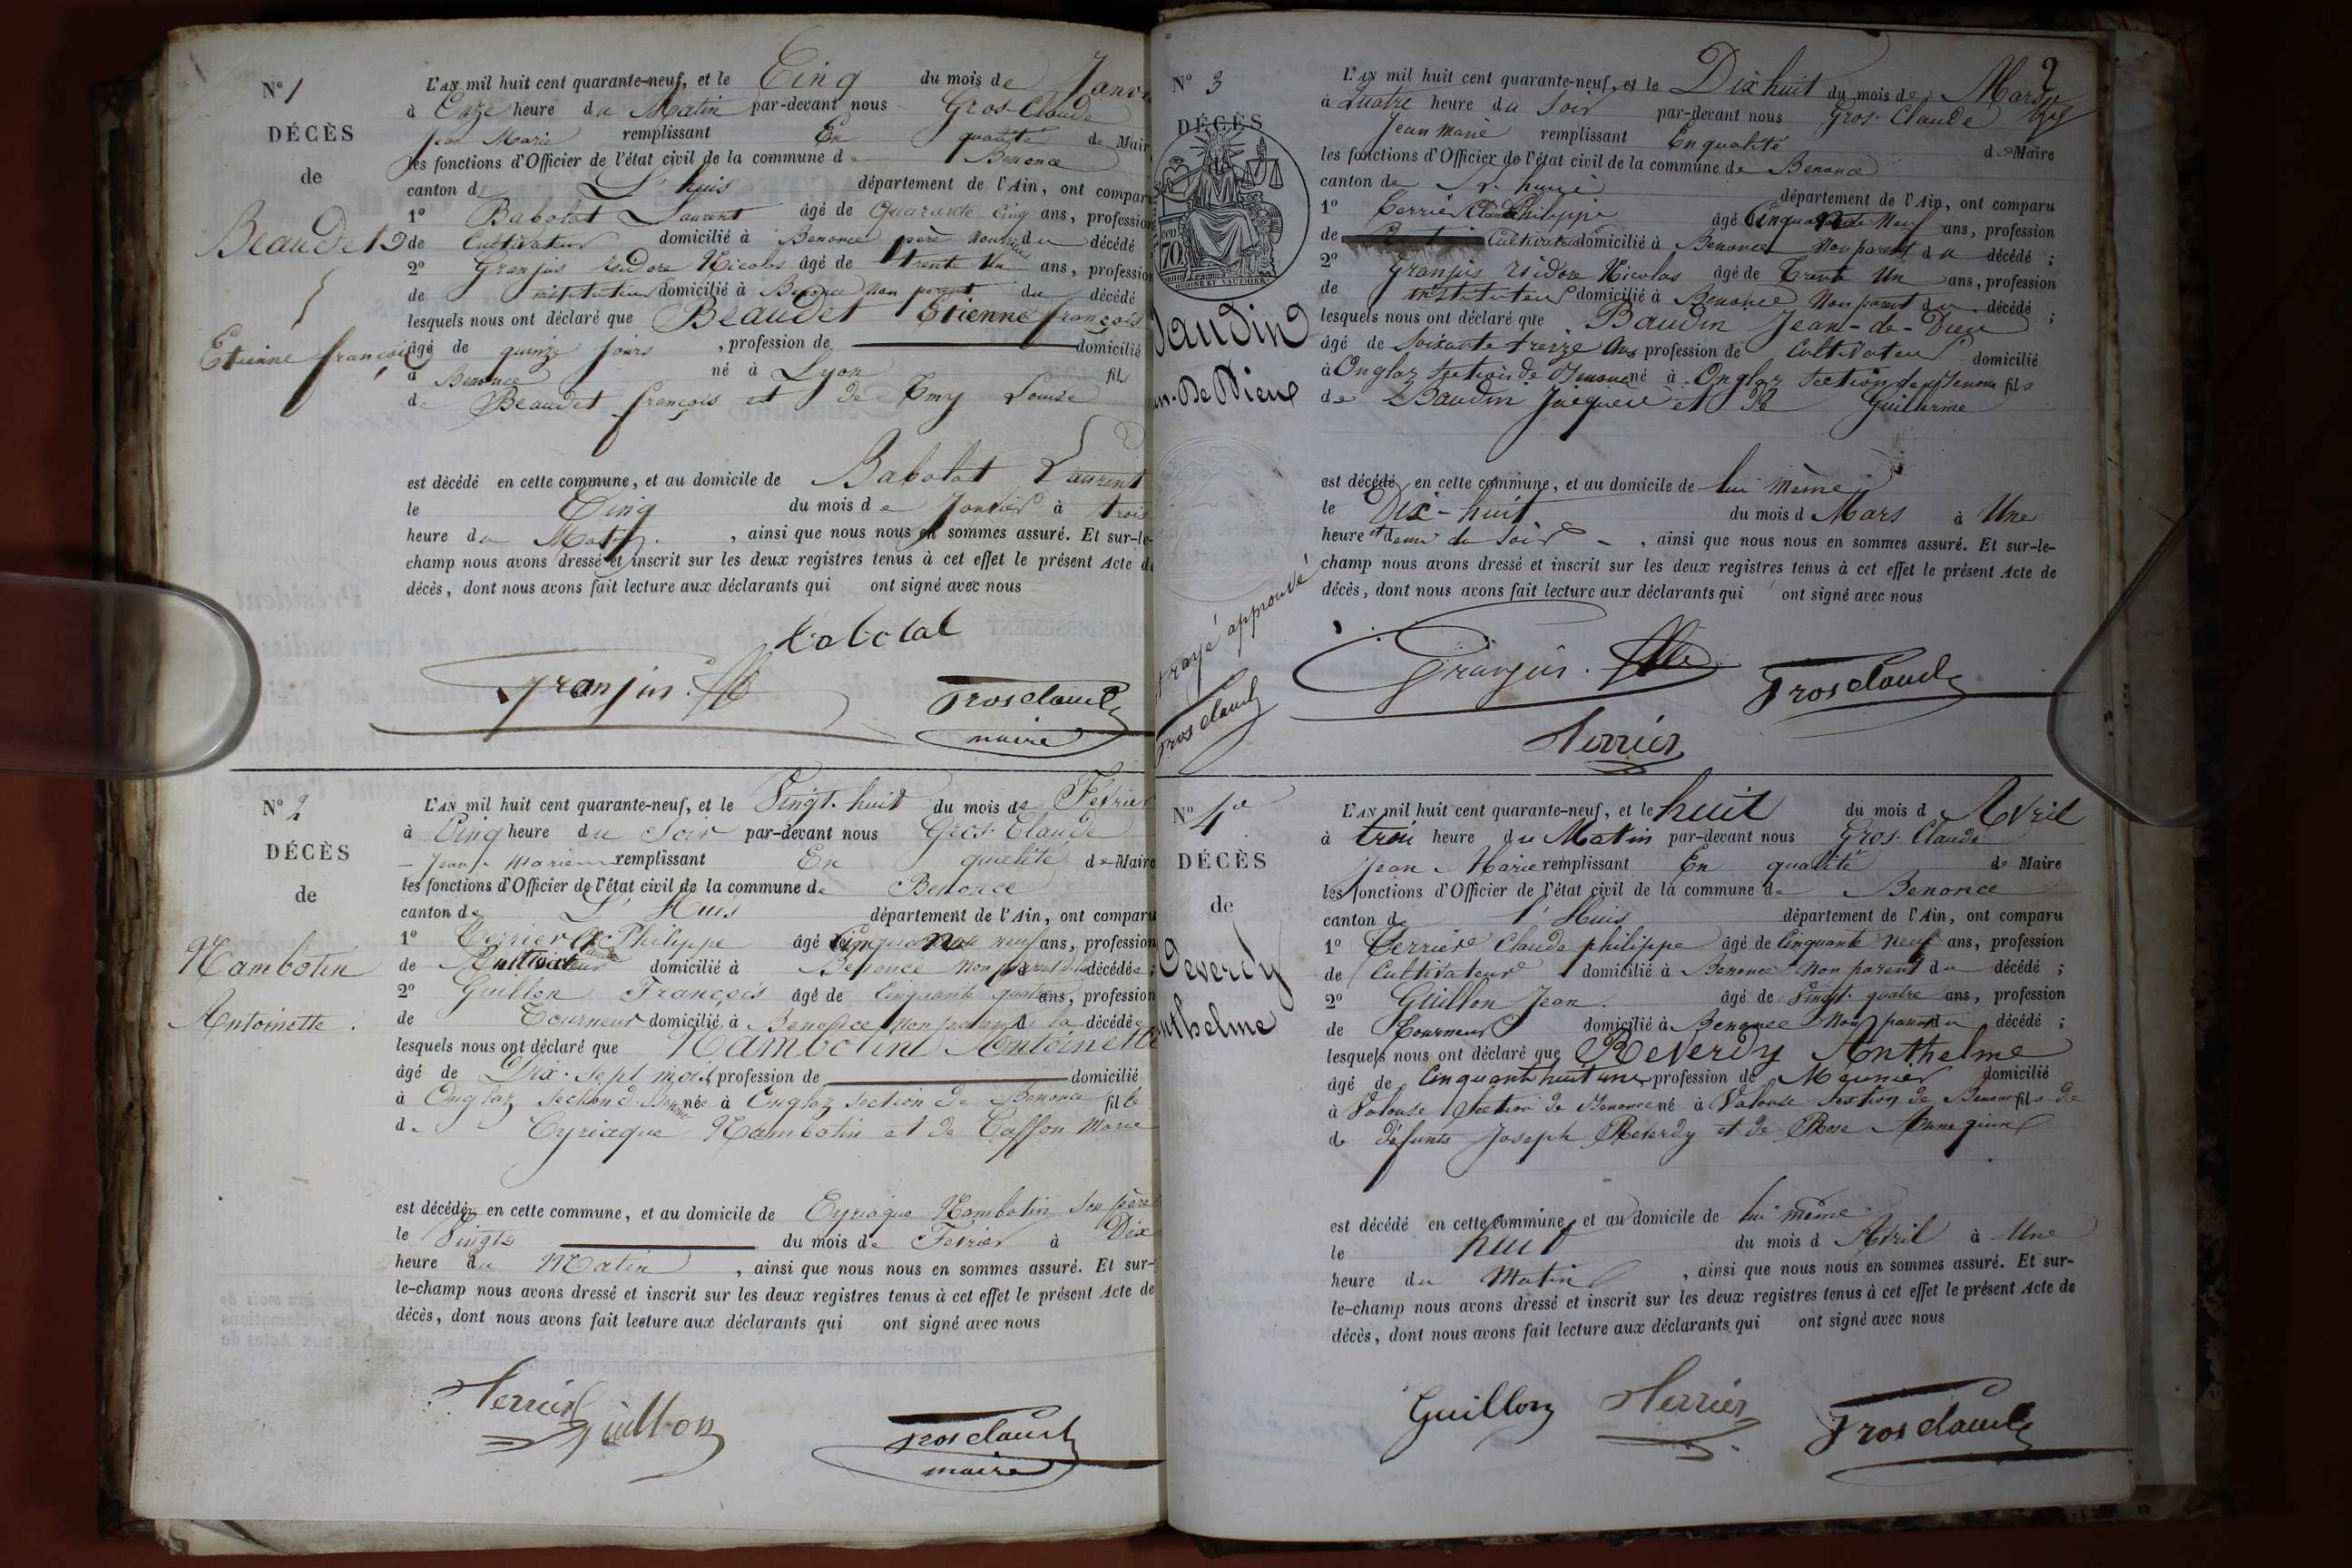 N° 1
DÉCÈS
de
Beaudet
Etienne françois
L'AN mil huit cent quarante-neuf, et le Cinq du mois de Janvi
à Onze heure du Matin par-devant nous Gros-Claude
Jean Marie remplissant En qualité de Mair
les fonctions d'Officier de l'état civil de la commune de Benonce
canton d L'huis département de l'Ain, ont compar
1° Babolat Laurent âgé de Quarante Cinq ans, profession
de Cultivateur domicilié à Benonce père nourricier du décédé
2° Granjus Isidore Nicolas âgé de trente Un ans, profession
de instituteur domicilié à Benonce non parent du décédé
lesquels nous ont déclaré que Beaudet Etienne françois
âgé de quinze jours , profession de domicilié
à Benonce né à Lyon fils
de Beaudet françois et de Emy Louise
est décédé en cette commune, et au domicile de Babolat Laurent
le Cinq du mois de Janvier à trois
heure du Matin , ainsi que nous nous en sommes assuré. Et sur-le-
champ nous avons dressé et inscrit sur les deux registres tenus à cet effet le présent Acte de
décès, dont nous avons fait lecture aux déclarants qui ont signé avec nous
Babolat
Granjus
Grosclaude
maire
N° 2
DÉCÈS
de
Nambotin
Antoinette.
L'AN mil huit cent quarante-neuf, et le Vingt-huit du mois de Fevrier
à Cinq heure du Soir par-devant nous Gros-Claude
Jean Marie remplissant En qualité de Maire
les fonctions d'Officier de l'état civil de la commune de Benonce
canton de L'Huis département de l'Ain, ont comparu
1° Terrier Philippe âgé Cinquante neuf ans, profession
de Cultivateur domicilié à Benonce Non parent de la décédée;
2° Guillon François âgé de Cinquante quatre ans, profession
de Tourneur domicilié à Benonce non parent de la décédée
lesquels nous ont déclaré que Nambotin Antoinette
âgé de Dix-sept mois, profession de domicilié
à Onglaz section de Benonce née à Onglaz section de Benonce fille
de Cyriaque Nambotin et de Caffon Marie
est décédée en cette commune, et au domicile de Cyriaque Nambotin son père
le Vingt du mois de Fevrier à Dix
heure du Matin , ainsi que nous nous en sommes assuré. Et sur-
le-champ nous avons dressé et inscrit sur les deux registres tenus à cet effet le présent Acte de
décès, dont nous avons fait lecture aux déclarants qui ont signé avec nous
Terrier
Guillon
Grosclaude
maire
2
N° 3
DÉCÈS
70
audin
an-De Dieu
L'AN mil huit cent quarante-neuf, et le Dix huit du mois de Mars
à Quatre heure du Soir par-devant nous Gros-Claude
Jean Marie remplissant En qualité de Maire
les fonctions d'Officier de l'état civil de la commune de Benonce
canton de L'huis département de l'Ain, ont comparu
1° Terrier Claude Philippe âgé Cinquante Neuf ans, profession
de Cultivateur domicilié à Benonce Non parent du décédé;
2° Granjus Isidore Nicolas âgé de Trente Un ans, profession
de instituteur domicilié à Benonce Non parent du décédé;
lesquels nous ont déclaré que Baudin Jean-de-Dieu
âgé de Soixante treize Ans profession de Cultivateur domicilié
à Onglaz Section de Benonce né à Onglaz Section de Benonce fils
de Baudin Jacques et de Guillerme
est décédé en cette commune, et au domicile de lui même
le Dix-huit du mois d Mars à Une
heure et demi du Soir , ainsi que nous nous en sommes assuré. Et sur-le-
champ nous avons dressé et inscrit sur les deux registres tenus à cet effet le présent Acte de
décès, dont nous avons fait lecture aux déclarants qui ont signé avec nous
rayé approuvé
Grosclaude
Granjus
Grosclaude
Terrier
N° 4
DÉCÈS
de
Reverdy
nthelme
L'AN mil huit cent quarante-neuf, et le huit du mois d Avril
à trois heure du Matin par-devant nous Gros-Claude
Jean Marie remplissant En qualité de Maire
les fonctions d'Officier de l'état civil de la commune de Benonce
canton de l'Huis département de l'Ain, ont comparu
1° Terrier Claude philippe âgé de Cinquante neuf ans, profession
de Cultivateur domicilié à Benonce Non parent du décédé;
2° Guillon Jean âgé de Vingt-quatre ans, profession
de Tourneur domicilié à Benonce Non parent du décédé;
lesquels nous ont déclaré que Reverdy Anthelme
âgé de Cinquante huit ans profession de Meunier domicilié
à Valouse Section de Benonce né à Valouse Section de Benonce fils de
de défunts Joseph Reverdy et de Rose Annequin
est décédé en cette commune, et au domicile de lui même
le huit du mois d Avril à Une
heure du Matin , ainsi que nous nous en sommes assuré. Et sur-
le-champ nous avons dressé et inscrit sur les deux registres tenus à cet effet le présent Acte de
décès, dont nous avons fait lecture aux déclarants qui ont signé avec nous
Guillon Terrier Grosclaude